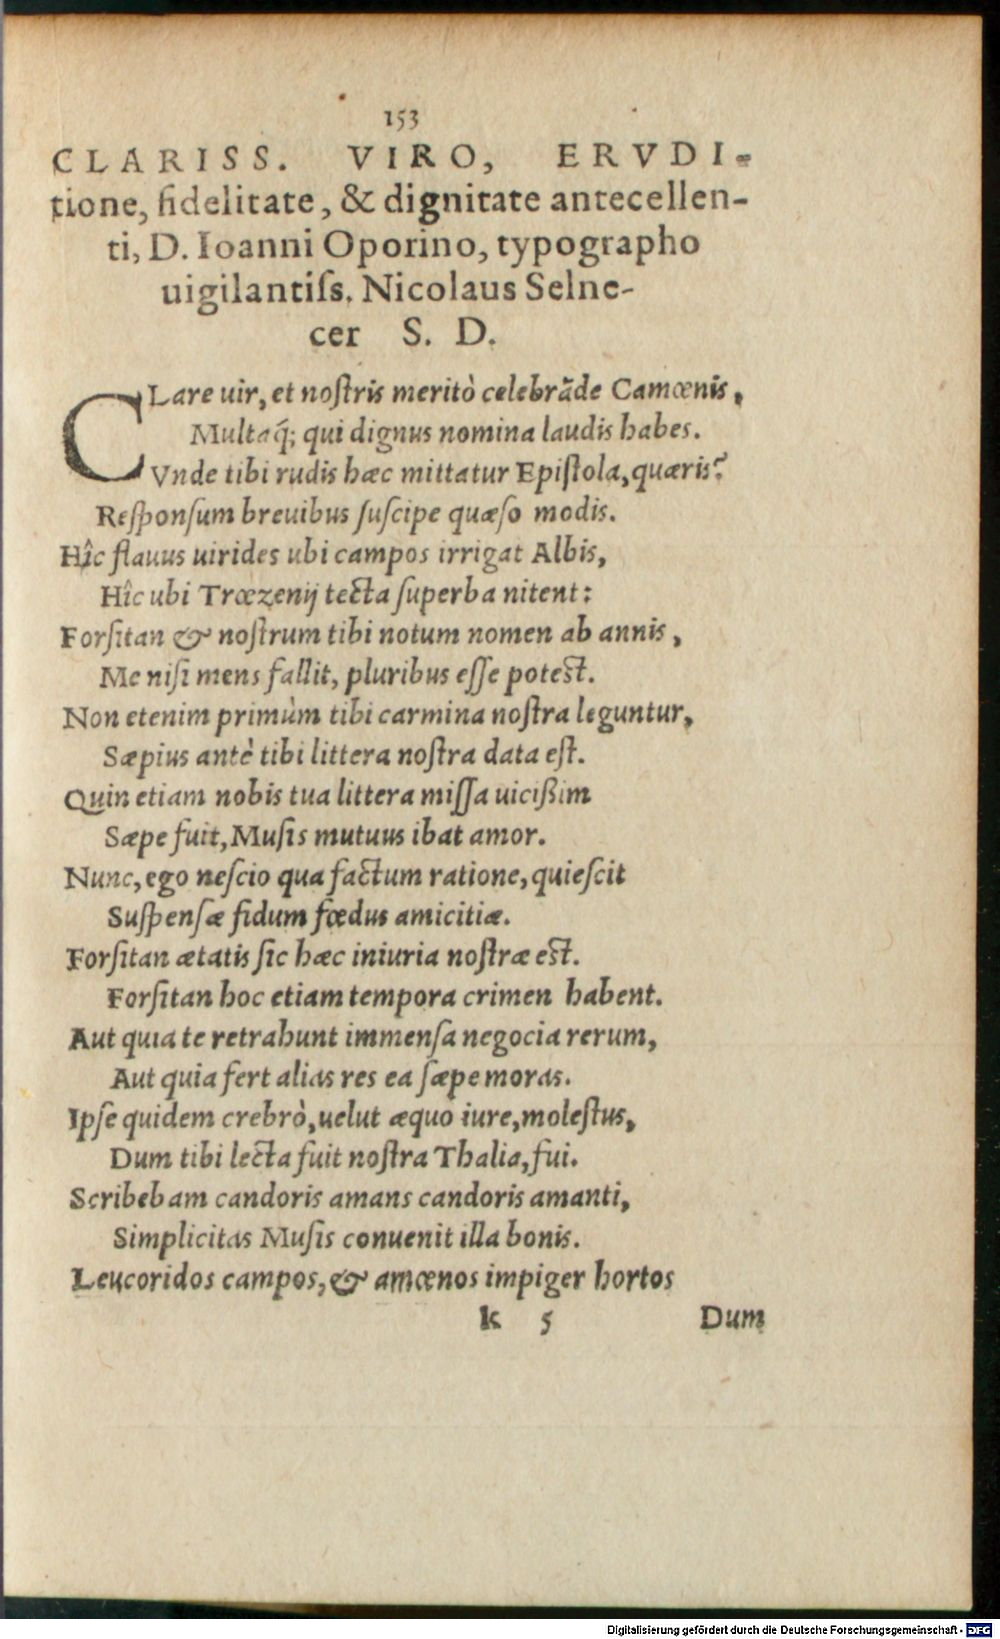 153
CLARISS. VIRO, ERVDI-
tione, fidelitate, & dignitate antecellen-
ti, D. Ioanni Oporino, typographo
uigilantiſs. Nicolaus Selne-
cer S. D.
CLare uir, et noſtris meritò celebrãde Camœnis,
Multaq́; qui dignus nomina laudis habes.
Vnde tibi rudis hæc mittatur Epiſtola, quæris?
Reſponſum breuibus ſuſcipe quæſo modis.
Hîc flauus uirides ubi campos irrigat Albis,
Hîc ubi Trœzenij tecta ſuperba nitent:
Forſitan & noſtrum tibi notum nomen ab annis,
Me niſi mens fallit, pluribus eſſe poteſt.
Non etenim primùm tibi carmina noſtra leguntur,
Sæpius antè tibi littera noſtra data eſt.
Quin etiam nobis tua littera miſſa uicißim
Sæpe fuit, Muſis mutuus ibat amor.
Nunc, ego neſcio qua factum ratione, quieſcit
Suſpenſæ fidum fœdus amicitiæ.
Forſitan ætatis ſic hæc iniuria noſtræ eſt.
Forſitan hoc etiam tempora crimen habent.
Aut quia te retrahunt immenſa negocia rerum,
Aut quia fert alias res ea ſæpe moras.
Ipſe quidem crebrò, uelut æquo iure, moleſtus,
Dum tibi lecta fuit noſtra Thalia, fui.
Scribebam candoris amans candoris amanti,
Simplicitas Muſis conuenit illa bonis.
Leucoridos campos, & amœnos impiger hortos
k 5 Dum
Digitalisierung gefördert durch die Deutsche Forschungsgemeinschaft - DFG